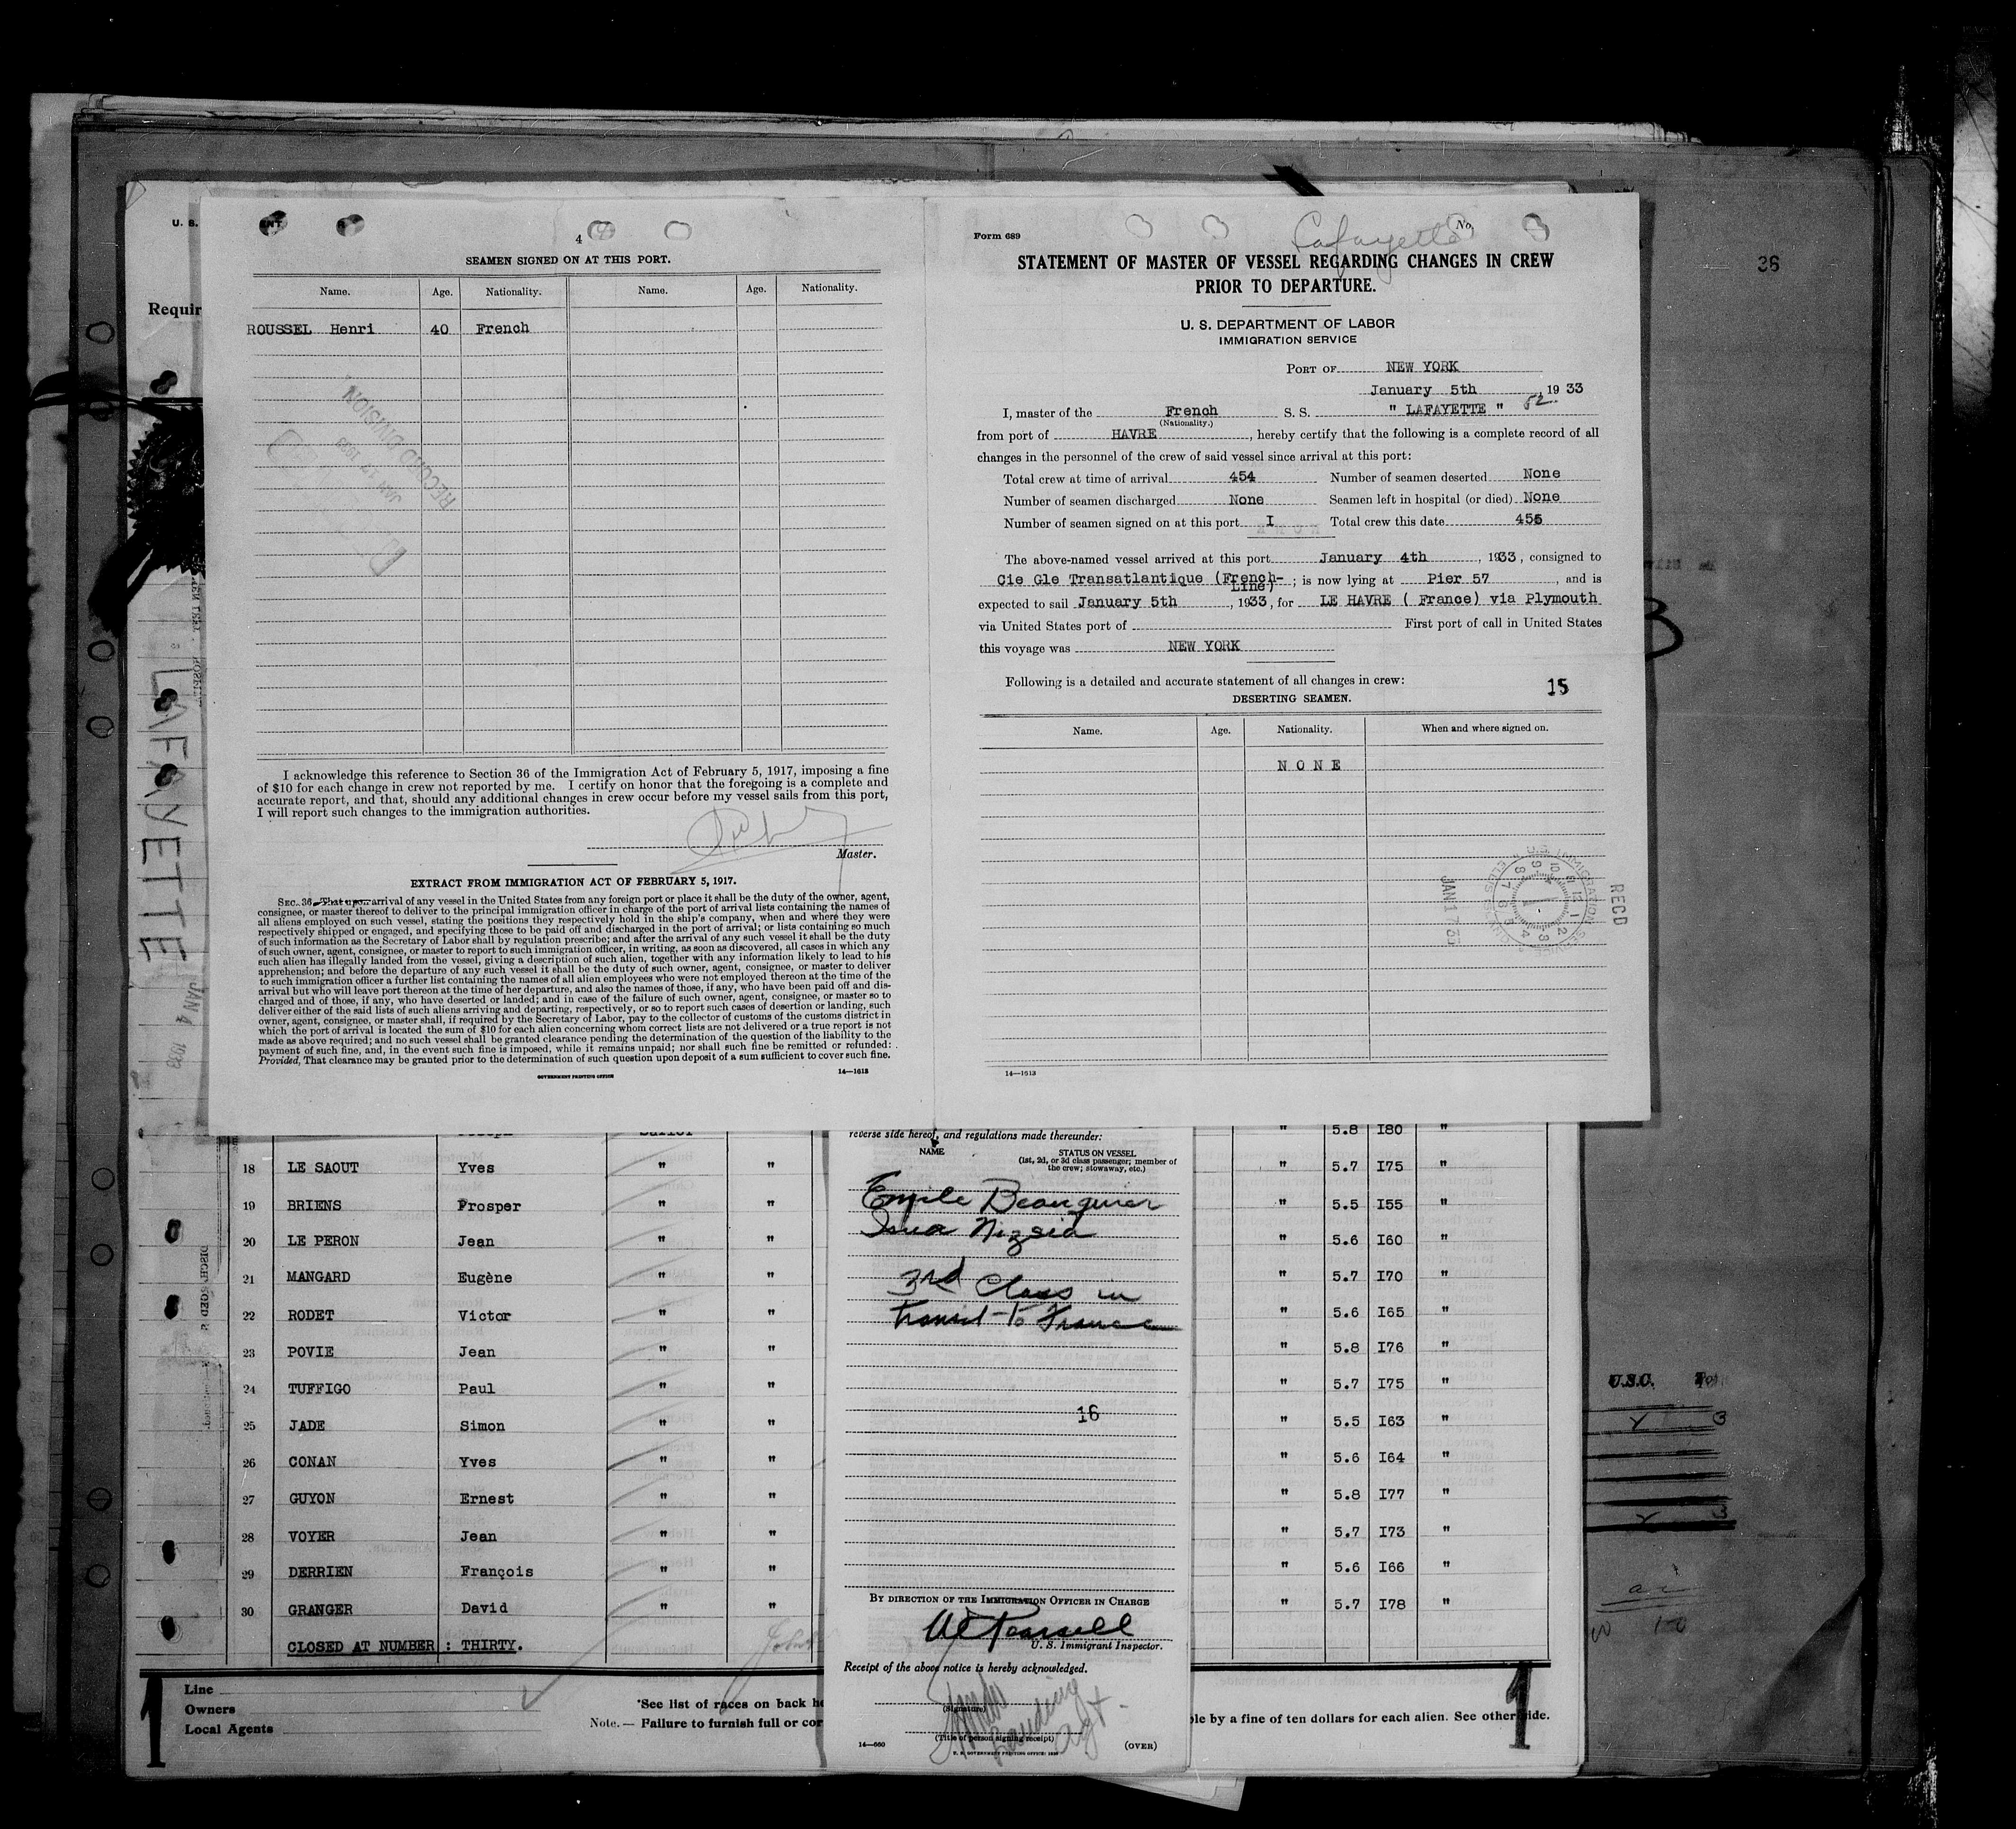 U. S.
ENT
Requir
4
SEAMEN SIGNED ON AT THIS PORT.
Name. Age. Nationality. Name. Age. Nationality.
ROUSSEL Henri 40 French
RECORD DIVISION
JAN 17 1933
I acknowledge this reference to Section 36 of the Immigration Act of February 5, 1917, imposing a fine
of $10 for each change in crew not reported by me. I certify on honor that the foregoing is a complete and
accurate report, and that, should any additional changes in crew occur before my vessel sails from this port,
I will report such changes to the immigration authorities.
Master.
EXTRACT FROM IMMIGRATION ACT OF FEBRUARY 5, 1917.
SEC. 36. That upon arrival of any vessel in the United States from any foreign port or place it shall be the duty of the owner, agent,
consignee, or master thereof to deliver to the principal immigration officer in charge of the port of arrival lists containing the names of
all aliens employed on such vessel, stating the positions they respectively hold in the ship's company, when and where they were
respectively shipped or engaged, and specifying those to be paid off and discharged in the port of arrival; or lists containing so much
of such information as the Secretary of Labor shall by regulation prescribe; and after the arrival of any such vessel it shall be the duty
of such owner, agent, consignee, or master to report to such immigration officer, in writing, as soon as discovered, all cases in which any
such alien has illegally landed from the vessel, giving a description of such alien, together with any information likely to lead to his
apprehension; and before the departure of any such vessel it shall be the duty of such owner, agent, consignee, or master to deliver
to such immigration officer a further list containing the names of all alien employees who were not employed thereon at the time of the
arrival but who will leave port thereon at the time of her departure, and also the names of those, if any, who have been paid off and dis-
charged and of those, if any, who have deserted or landed; and in case of the failure of such owner, agent, consignee, or master so to
deliver either of the said lists of such aliens arriving and departing, respectively, or so to report such cases of desertion or landing, such
owner, agent, consignee, or master shall, if required by the Secretary of Labor, pay to the collector of customs of the customs district in
which the port of arrival is located the sum of $10 for each alien concerning whom correct lists are not delivered or a true report is not
made as above required; and no such vessel shall be granted clearance pending the determination of the question of the liability to the
payment of such fine, and, in the event such fine is imposed, while it remains unpaid; nor shall such fine be remitted or refunded:
Provided, That clearance may be granted prior to the determination of such question upon deposit of a sum sufficient to cover such fine.
GOVERNMENT PRINTING OFFICE 14—1613
Form 689
Lafayette
No.
STATEMENT OF MASTER OF VESSEL REGARDING CHANGES IN CREW
PRIOR TO DEPARTURE.
U. S. DEPARTMENT OF LABOR
IMMIGRATION SERVICE
PORT OF NEW YORK
January 5th, 1933
I, master of the French S. S. " LAFAYETTE " 52.
(Nationality.)
from port of HAVRE, hereby certify that the following is a complete record of all
changes in the personnel of the crew of said vessel since arrival at this port:
Total crew at time of arrival 454 Number of seamen deserted None
Number of seamen discharged None Seamen left in hospital (or died) None
Number of seamen signed on at this port I Total crew this date 455
The above-named vessel arrived at this port January 4th, 1933, consigned to
Cie Gle Transatlantique (French-Line); is now lying at Pier 57, and is
expected to sail January 5th, 1933, for LE HAVRE ( France) via Plymouth
via United States port of First port of call in United States
this voyage was NEW YORK
Following is a detailed and accurate statement of all changes in crew:
15
DESERTING SEAMEN.
Name. Age. Nationality. When and where signed on.
N O N E
RECD
JAN 17 33
14—1613
36
LAFAYETTE
JAN 4 1933
reverse side hereof, and regulations made thereunder:
NAME STATUS ON VESSEL
(1st, 2d, or 3d class passenger; member of
the crew; stowaway, etc.)
3rd Class in
transit to France
16
BY DIRECTION OF THE IMMIGRATION OFFICER IN CHARGE
U. S. Immigrant Inspector.
Receipt of the above notice is hereby acknowledged.
(Signature)
Landing Agt.
(Title of person signing receipt)
14—660 U. S. GOVERNMENT PRINTING OFFICE (OVER)
5.8 I80 "
18 LE SAOUT Yves " " " 5.7 I75 "
19 BRIENS Prosper " " " 5.5 I55 "
20 LE PERON Jean " " " 5.6 I60 "
21 MANGARD Eugène " " " 5.7 I70 "
22 RODET Victor " " " 5.6 I65 "
23 POVIE Jean " " " 5.8 I76 "
24 TUFFIGO Paul " " " 5.7 I75 "
25 JADE Simon " " " 5.5 I63 "
26 CONAN Yves " " " 5.6 I64 "
27 GUYON Ernest " " " 5.8 I77 "
28 VOYER Jean " " " 5.7 I73 "
29 DERRIEN François " " " 5.6 I66 "
30 GRANGER David " " " 5.7 I78 "
CLOSED AT NUMBER : THIRTY.
1
Line
Owners
Local Agents
*See list of races on back he
Note.— Failure to furnish full or cor
ble by a fine of ten dollars for each alien. See other side.
1
U.S.C.